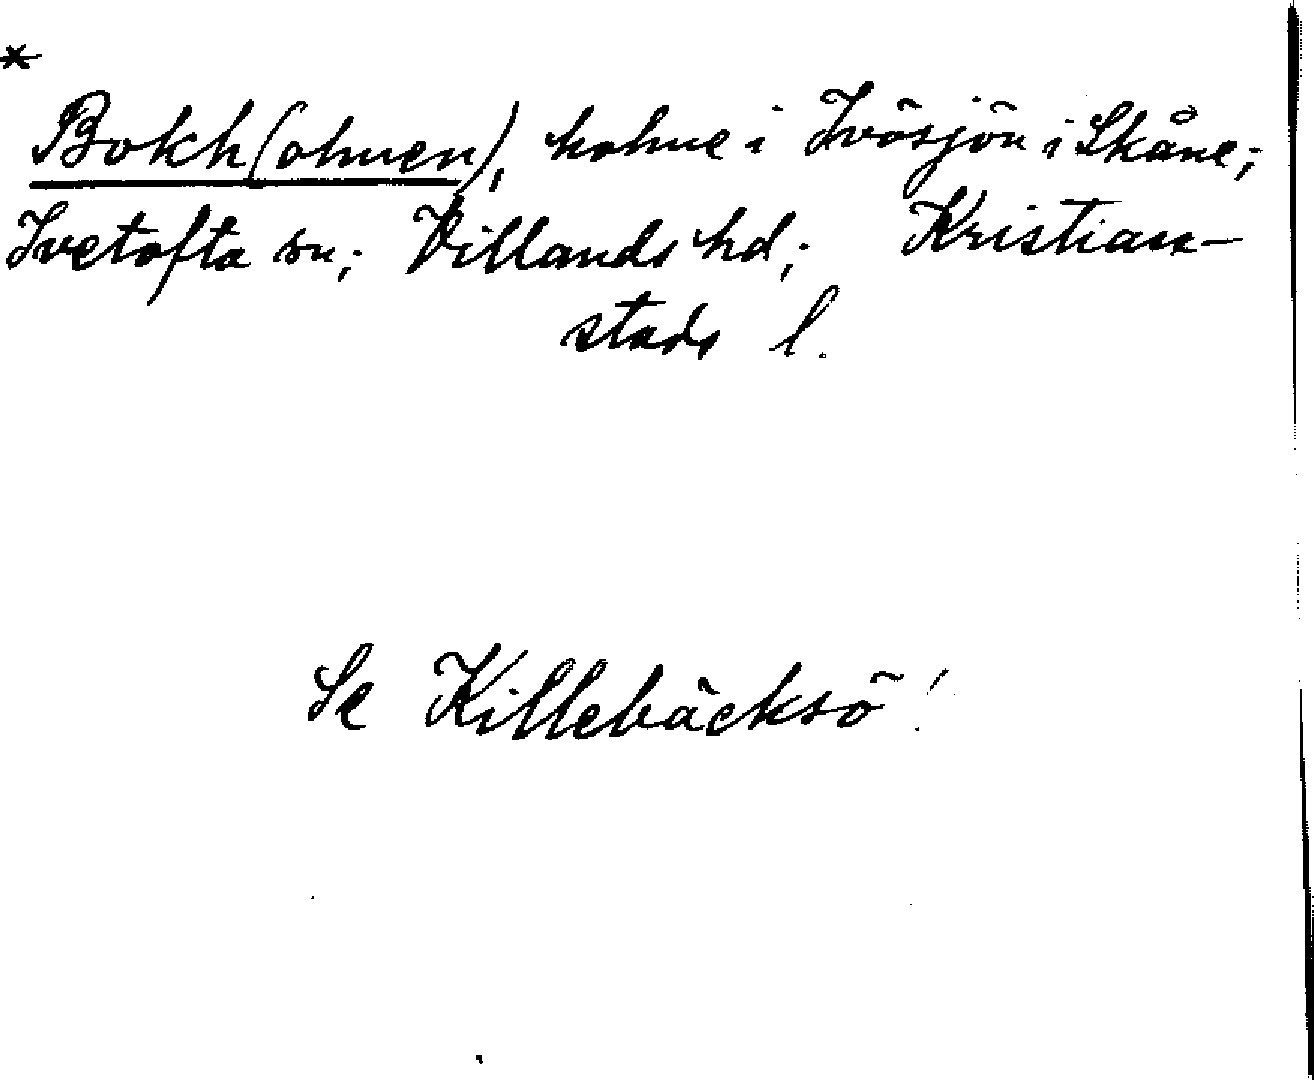 *
Bokh(olmen), holme i Ivösjön i Skåne;
Ivetofta sn; Villands hd; Kristian-
stads l.
Se Killebäcksö!